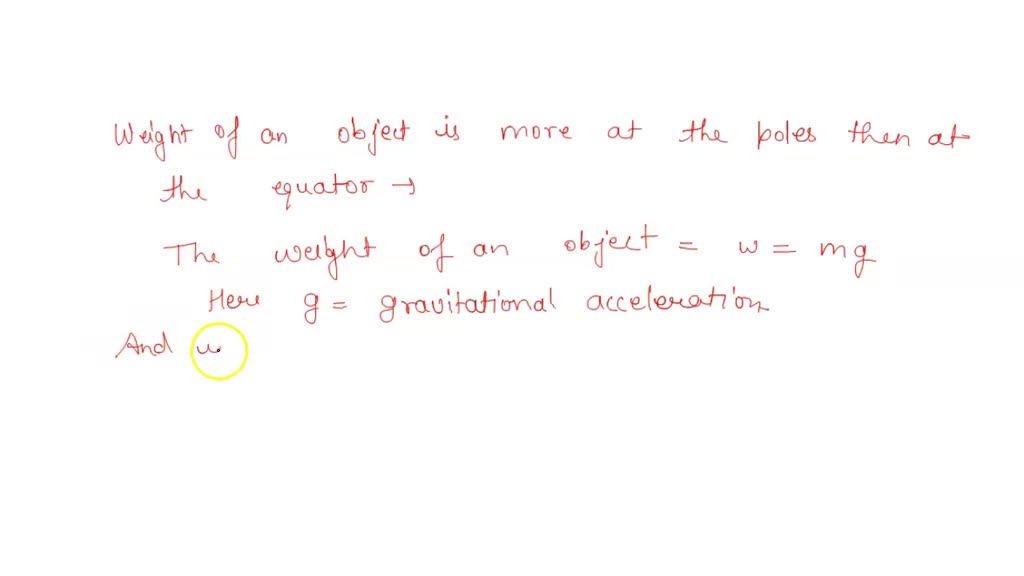 Weight of an object is more at the poles then at
the equator →
The weight of an object = w = mg
Here g = gravitational acceleration
And w